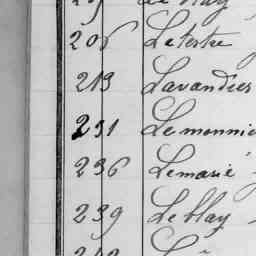 206 Letertre
213 Lavandier
231 Lemonnie
236 Lemarié
239 Leblay